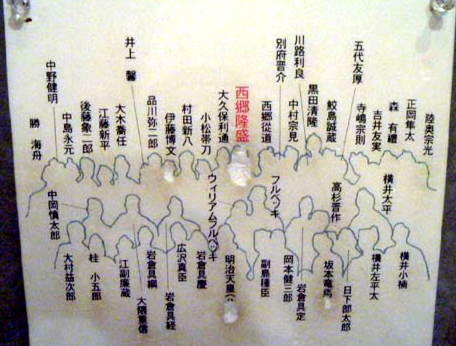 陸奥宗光
正岡隼太
森 有禮
吉井友実
寺嶋宗則
五代友厚
鮫島誠蔵
黒田清隆
川路利良
中村宗見
別府晋介
西郷從道
西郷隆盛
大久保利通
小松帯刀
村田新八
伊藤博文
品川弥二郎
井上 馨
大木喬任
江藤新平
後藤象二郎
中島永元
中野健明
勝 海舟
横井小楠
横井太平
横井左平太
日下部太郎
高杉晋作
坂本竜馬
岩倉具定
岡本健三郎
フルベッキ
副島種臣
明治天皇
ウィリアムフルベッキ
岩倉具慶
広沢真臣
岩倉具経
岩倉具綱
大隈重信
江副廉蔵
桂 小五郎
中岡慎太郎
大村益次郎